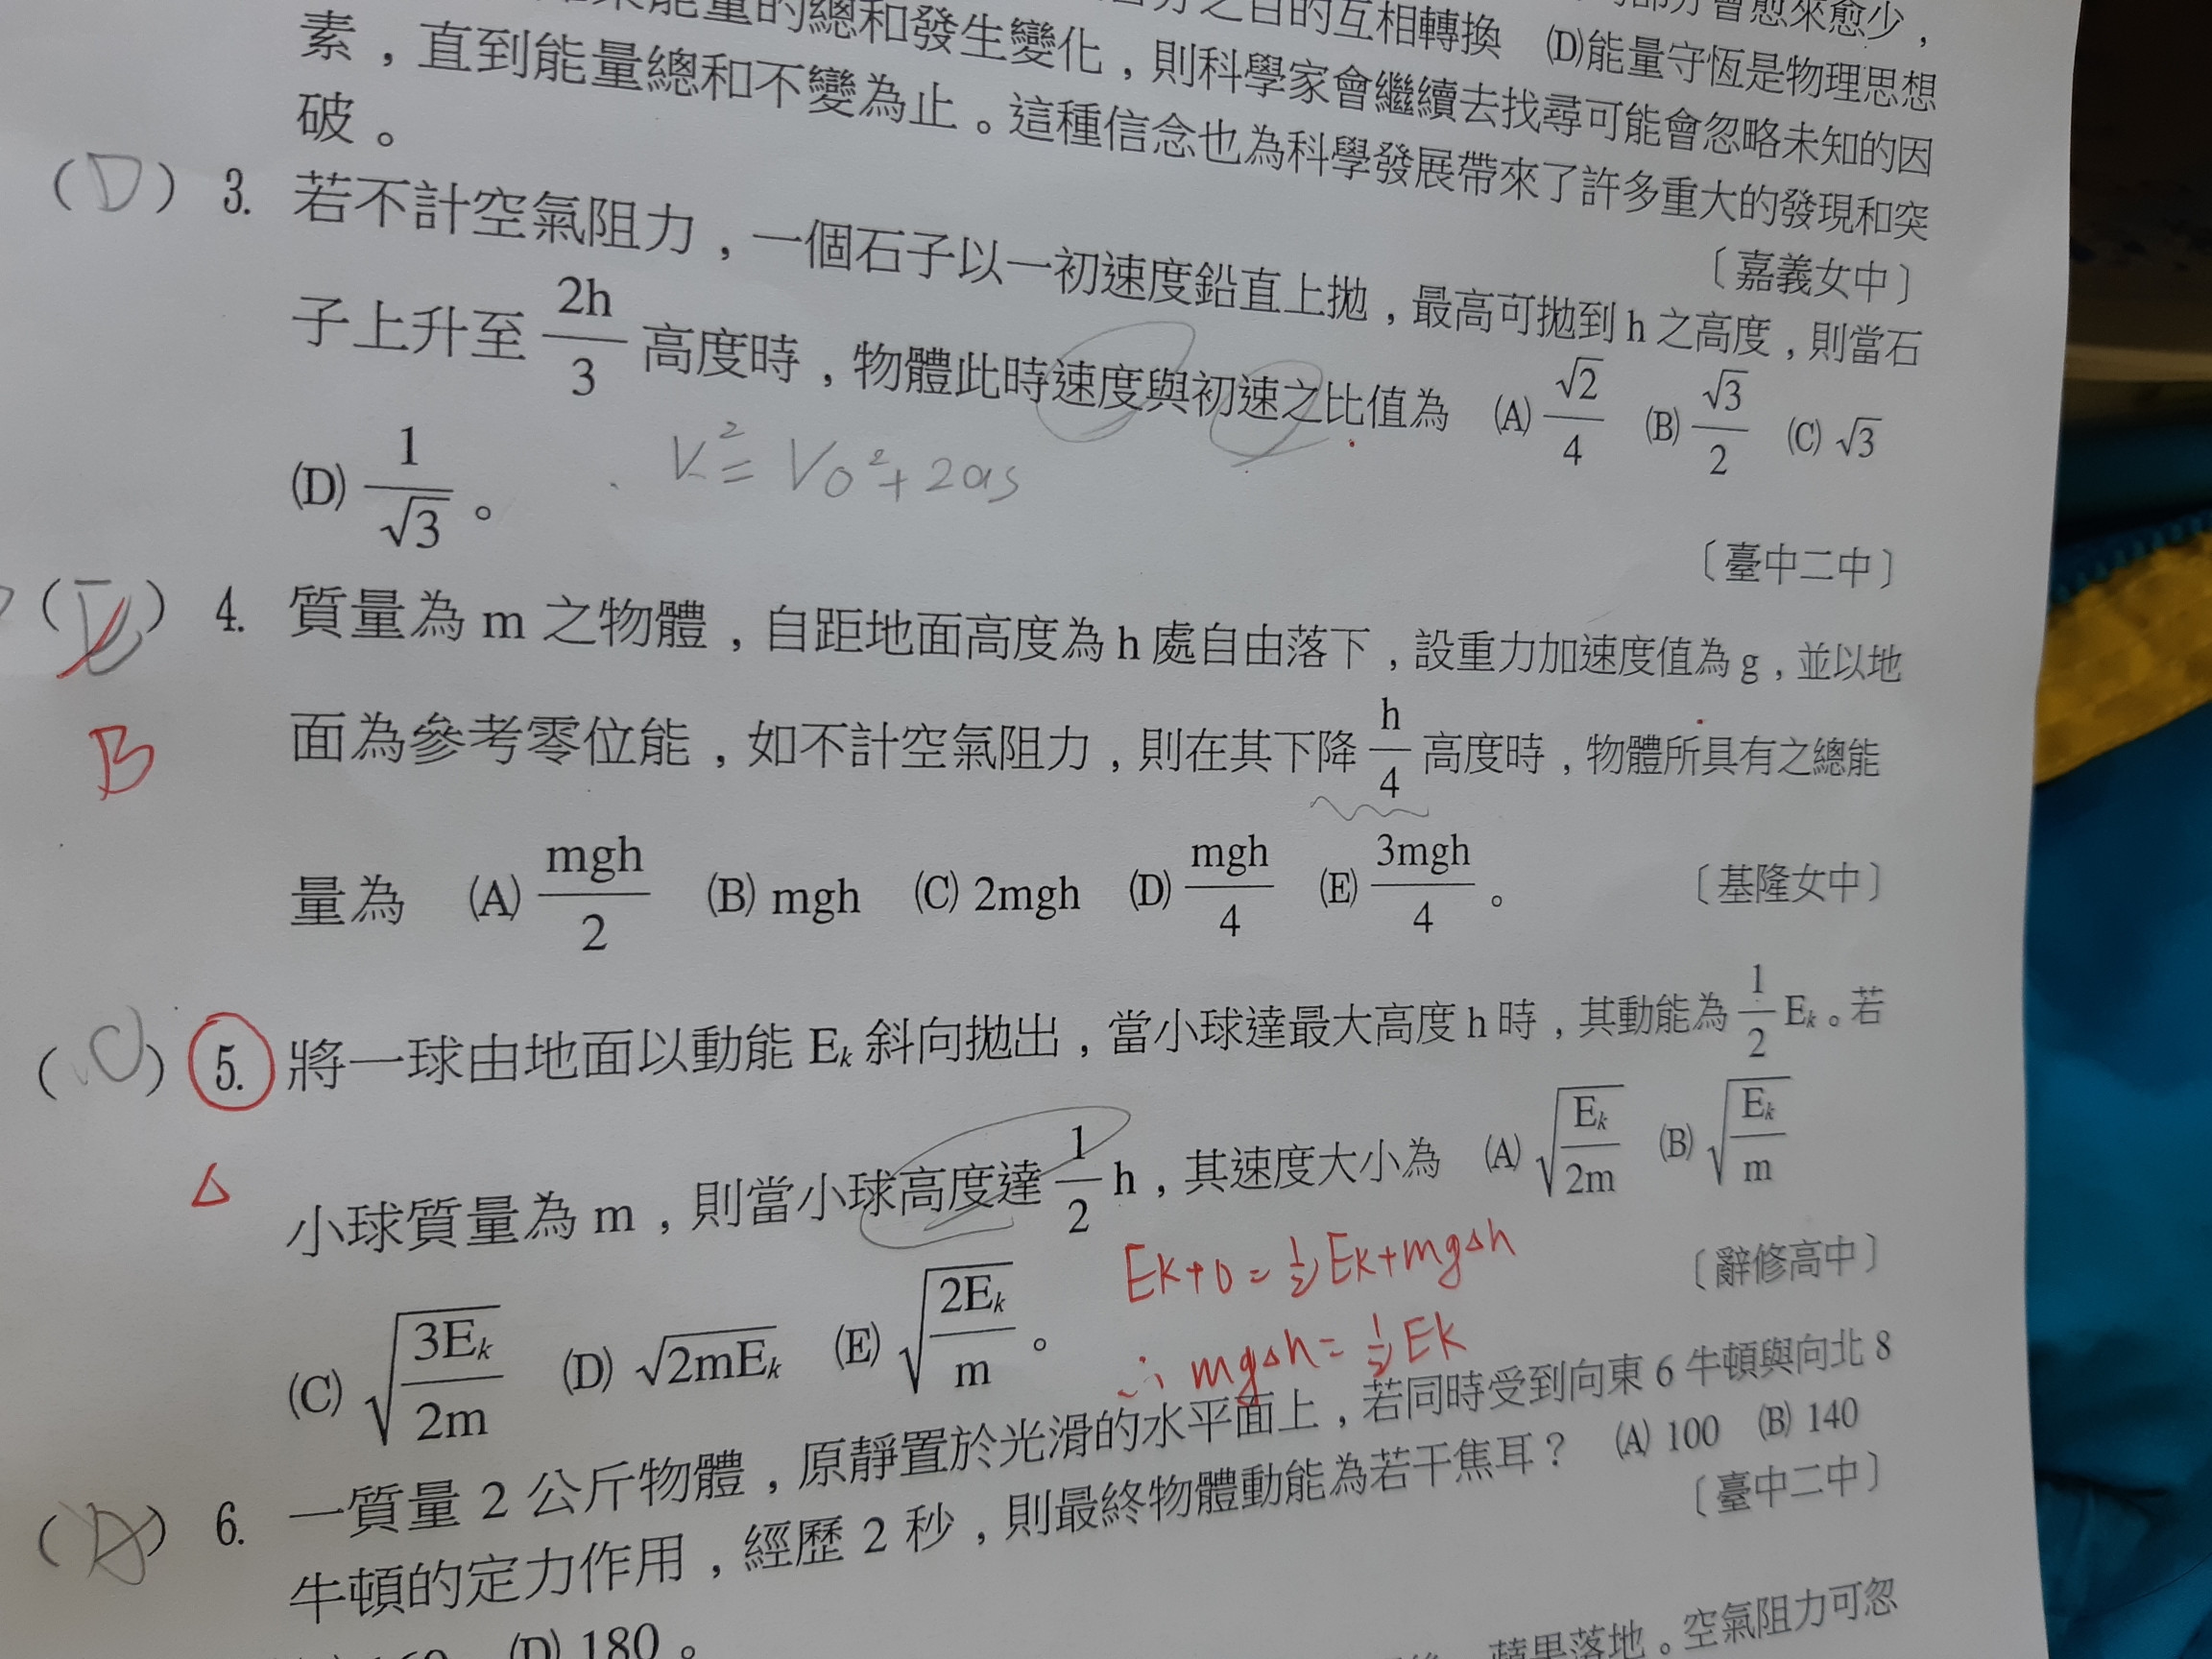 能量的總和發生變化，則科學家會繼續去找尋可能會忽略未知的因
之百的互相轉換 (D)能量守恆是物理思想
會愈來愈少，
素，直到能量總和不變為止。這種信念也為科學發展帶來了許多重大的發現和突
破。
〔嘉義女中〕
(D) 3. 若不計空氣阻力，一個石子以一初速度鉛直上拋，最高可拋到 h 之高度，則當石
子上升至 2h/3 高度時，物體此時速度與初速之比值為 (A) √2/4 (B) √3/2 (C) √3
(D) 1/√3 。
V²=V0²+2as
〔臺中二中〕
4. 質量為 m 之物體，自距地面高度為 h 處自由落下，設重力加速度值為 g，並以地
B
面為參考零位能，如不計空氣阻力，則在其下降 h/4 高度時，物體所具有之總能
量為 (A) mgh/2 (B) mgh (C) 2mgh (D) mgh/4 (E) 3mgh/4 。 〔基隆女中〕
(C) 5. 將一球由地面以動能 Ek 斜向拋出，當小球達最大高度 h 時，其動能為 1/2 Ek。若
△
小球質量為 m，則當小球高度達 1/2 h，其速度大小為 (A) √(Ek/2m) (B) √(Ek/m)
(C) √(3Ek/2m) (D) √(2mEk) (E) √(2Ek/m) 。 〔辭修高中〕
Ek+0=½Ek+mg△h
∴ mg△h=½Ek
6. 一質量 2 公斤物體，原靜置於光滑的水平面上，若同時受到向東 6 牛頓與向北 8
牛頓的定力作用，經歷 2 秒，則最終物體動能為若干焦耳？ (A) 100 (B) 140
160 (D) 180。 〔臺中二中〕
蘋果落地。空氣阻力可忽